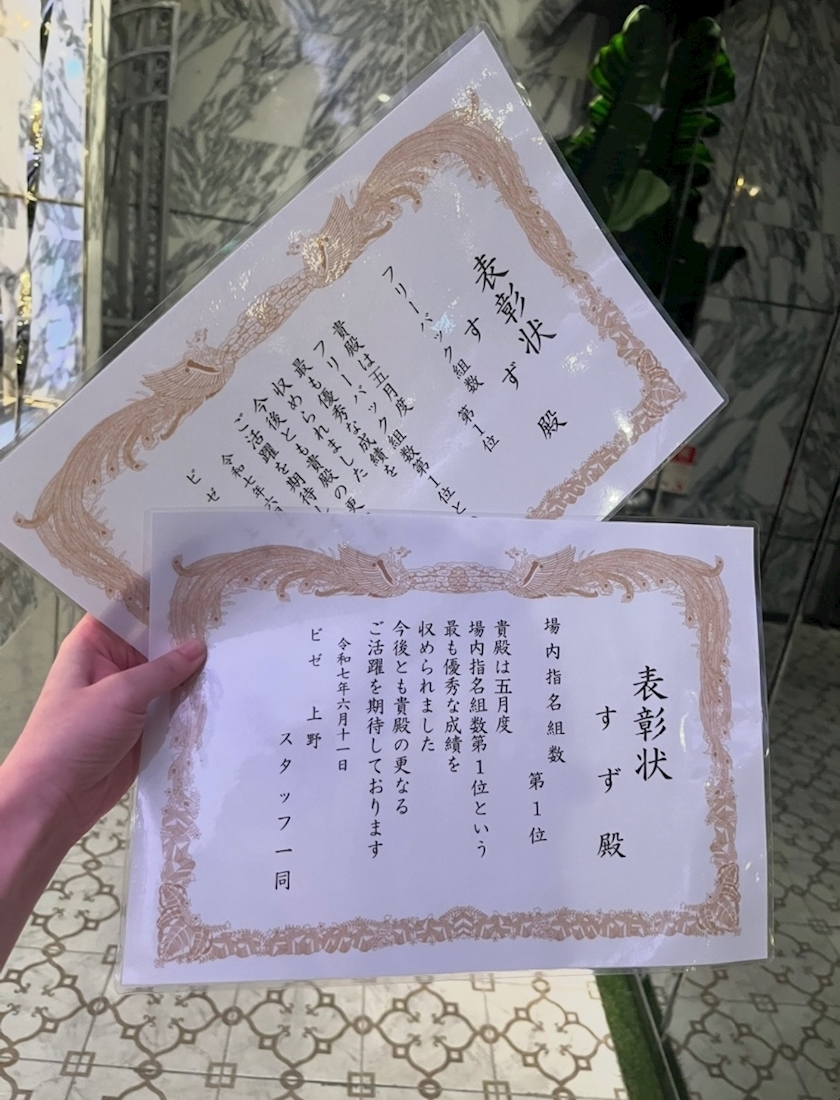 表彰状
すず 殿
フリーバック組数 第1位
貴殿は五月度
フリーバック組数第1位と
最も優秀な成績を
収められました
今後とも貴殿の更
ご活躍を期待し
令和七年六月
ビゼ
表彰状
すず 殿
場内指名組数
第1位
貴殿は五月度
場内指名組数第1位という
最も優秀な成績を
収められました
今後とも貴殿の更なる
ご活躍を期待しております
令和七年六月十一日
ビゼ 上野
スタッフ一同